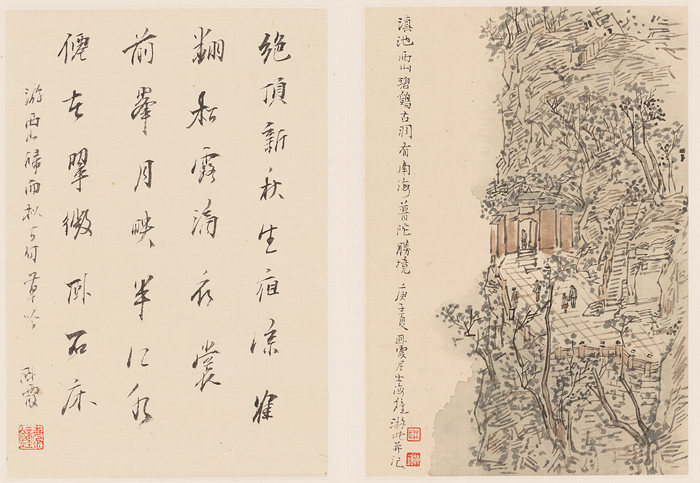 绝頂新秋生夜凉隺
翻松露滴衣裳
前峯月映半江水
僊在翠微卧石床
游西山歸而古句草吟
滇池西山碧鷄古洞有南海普陀勝境 庚子夏 霞居士海游此并记